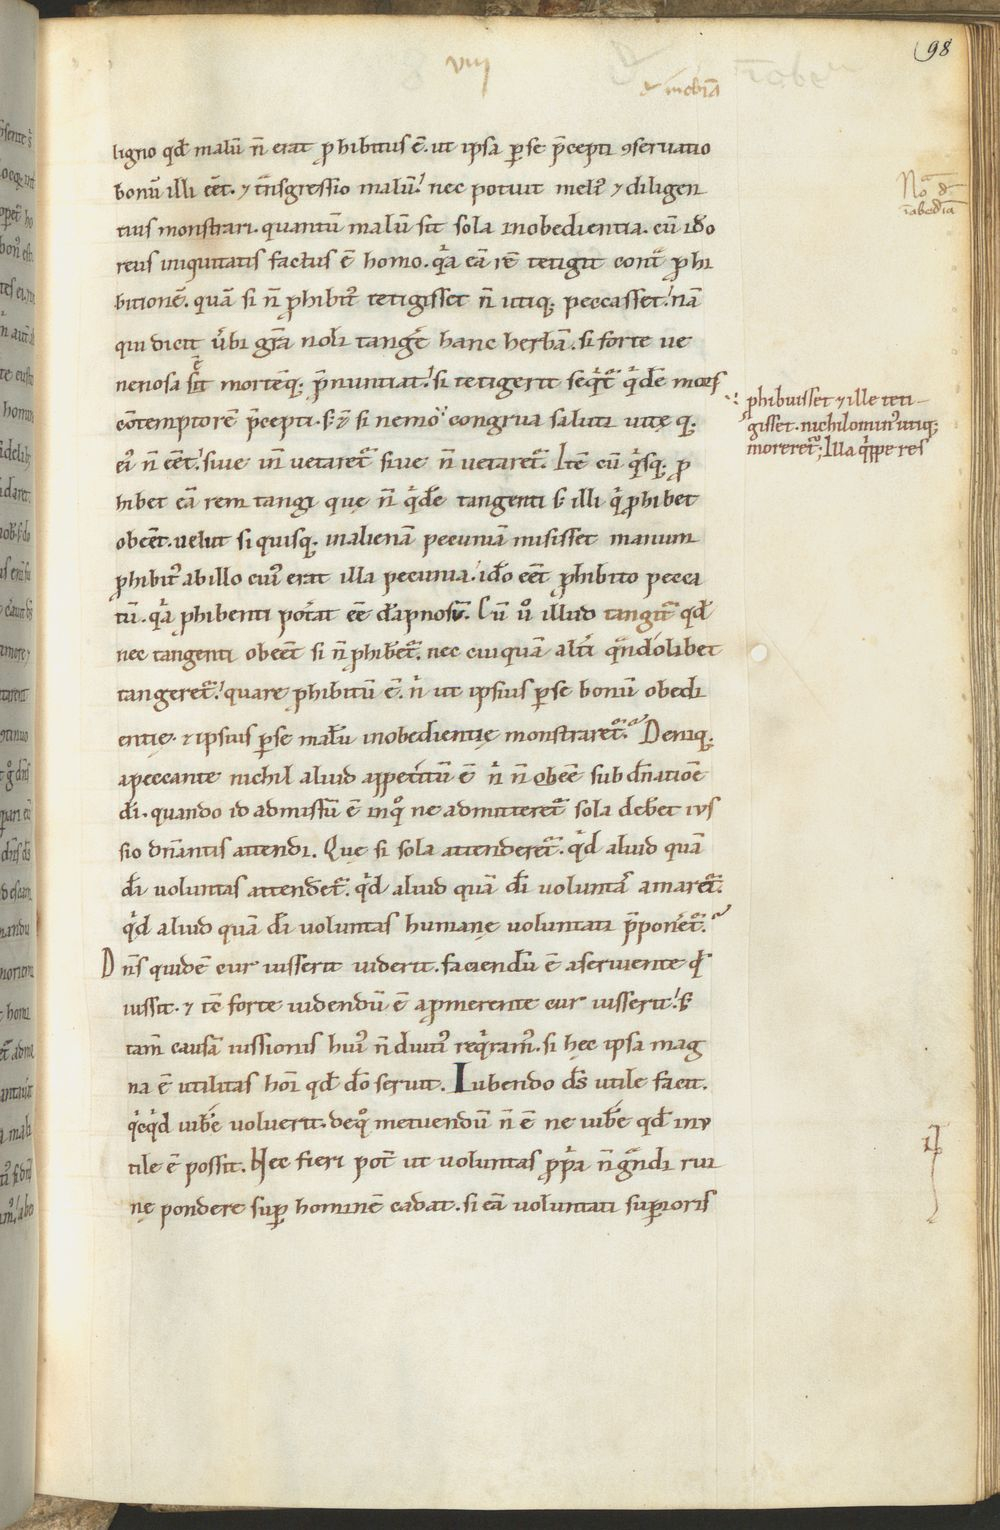 98
viij
de inobiā
ligno qđ malū n̄ erat ꝓhibitus ē. ut ipsa ꝑ se p̄cepti ꝯseruatio
bonū illi eēt. ⁊ t̄nsgressio malū. nec potuit meliꝰ ⁊ diligen
tius monstrari. quantū malū sit sola inobedientia. cū iđo
reus iniquitatis factus ē homo. qͥa eā rē tetigit cont̄ ꝓhi
bitionē. quā si n̄ ꝓhibitꝰ tetigisset n̄ utiq; peccasset. nā
qui dicit ůbi gr̄a noli tangē hanc herbā. si forte ue
nenosa sit mortēq; p̄nuntiat. si tetigerit seqͥt̄ qͥdē mors
cōtemptorē p̄cepti. sꝫ ⁊ si nemo
ꝓhibuisset ⁊ ille teti
gisset. nichilominꝰ utiq;
moreret̄; Illa qͥppe res
congrua saluti uitę q;
eiꝰ n̄ eēt. siue in vetaret̄ siue n̄ uetaret̄. Itē cū qͥsq; ꝓ
hibet eā rem tangi quę n̄ qͥdē tangenti sꝫ illi qͥ ꝓhibet
obeēt. uelut si quisq; in alienā pecuniā misisset manum
ꝓhibitꝰ ab illo cuiꝰ erat illa pecunia. iđo eēt ꝓhibito pecca
tū. qͥa ꝓhibenti pot̄at eē dāpnosū. Cū uͦ illud tangit̄ qđ
nec tangenti obeēt si n̄ ꝓhibet̄. nec cuiquā alt̄i qn̄dolibet
tangeret̄. quare ꝓhibitū ē. nͥ ut ipsius ꝑ se bonū obedi
entię. ⁊ ipsius ꝑ se malū inobedientię monstraret̄. Deniq;
a peccante nichil aliud appetitū ē nͥ n̄ eē sub dn̄atione
di. quando id admissū ē in qͦ ne admitteret̄ sola debet ius
sio dn̄antis attendi. Quę si sola attenderet̄. qͥd aliud quā
di uoluntas attendet̄. qͥd aliud quā di uoluntas amaret̄.
qͥd aliud quā di uoluntas humanę uoluntati p̄poneret̄.
Dn̄s quidē cur iusserit uiderit. faciendū ē a seruiente qđ
iussit. ⁊ tē forte uidendū ē a ꝓmerente cur iusserit. sꝫ
tam̄ causā iussionis huiꝰ n̄ diutiꝰ reqͥramꝰ. si hęc ipsa mag
na ē utilitas hoī qđ do seruit. Iubendo ds utile facit.
qͥcqͥd iubē uoluerit. de qͦ metuendū n̄ ē ne iubē qđ inu
tile ē possit. Nec fieri pot̄ ut uoluntas ꝓpͥa n̄ gͣndi rui
nę pondere suꝑ hominē cadat. si eā uoluntati suꝑioris
No de
īobediā